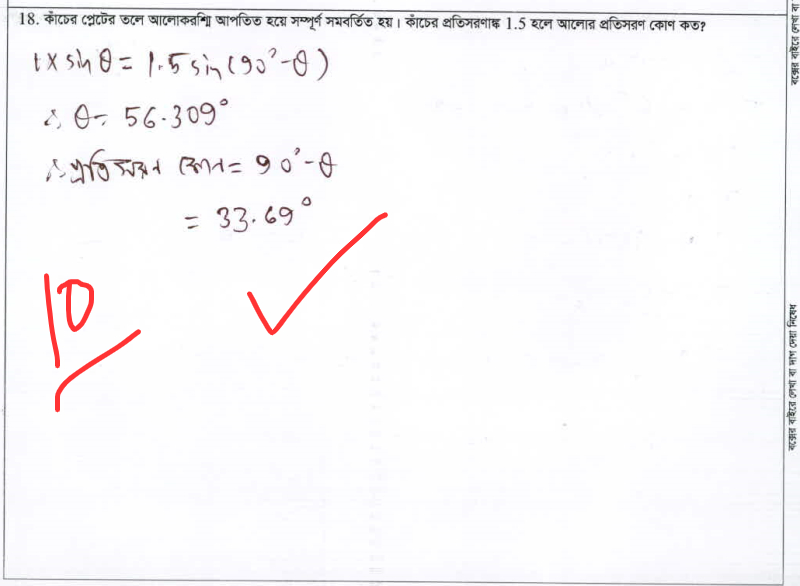 18. কাঁচের প্লেটের তলে আলোকরশ্মি আপতিত হয়ে সম্পূর্ণ সমবর্তিত হয়। কাঁচের প্রতিসরণাঙ্ক 1.5 হলে আলোর প্রতিসরণ কোণ কত?
1 × sin θ = 1.5 sin (90° - θ)
∴ θ = 56.309°
∴ প্রতিসরন কোন = 90° - θ
= 33.69°
10
বক্সের বাইরে লেখা বা
বক্সের বাইরে লেখা বা দাগ দেয়া নিষেধ